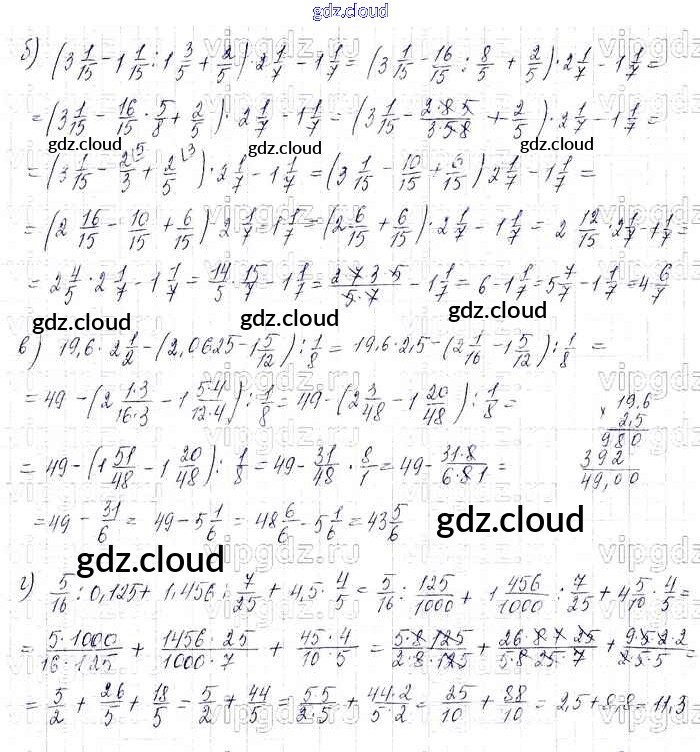 gdz.cloud
б) (3 1/15 - 1 1/15 : 1 3/5 + 2/5) · 2 1/7 - 1 1/7 = (3 1/15 - 16/15 : 8/5 + 2/5) · 2 1/7 - 1 1/7 =
= (3 1/15 - 16/15 · 5/8 + 2/5) · 2 1/7 - 1 1/7 = (3 1/15 - 2·8·5/3·5·8 + 2/5) · 2 1/7 - 1 1/7 =
= (3 1/15 - 2/3 + 2/5) · 2 1/7 - 1 1/7 = (3 1/15 - 10/15 + 6/15) 2 1/7 - 1 1/7 =
= (2 16/15 - 10/15 + 6/15) · 2 1/7 - 1 1/7 = (2 6/15 + 6/15) · 2 1/7 - 1 1/7 = 2 12/15 · 2 1/7 - 1 1/7 =
= 2 4/5 · 2 1/7 - 1 1/7 = 14/5 · 15/7 - 1 1/7 = 2·7·3·5/5·7 - 1 1/7 = 6 - 1 1/7 = 5 7/7 - 1 1/7 = 4 6/7
gdz.cloud gdz.cloud gdz.cloud
в) 19,6 · 2 1/2 - (2,0625 - 1 5/12) : 1/8 = 19,6 · 2,5 - (2 1/16 - 1 5/12) : 1/8 =
= 49 - (2 1·3/16·3 - 1 5·4/12·4) : 1/8 = 49 - (2 3/48 - 1 20/48) : 1/8 =
× 19,6
2,5
980
392
49,00
= 49 - (1 51/48 - 1 20/48) : 1/8 = 49 - 31/48 · 8/1 = 49 - 31·8/6·81 =
= 49 - 31/6 = 49 - 5 1/6 = 48 6/6 - 5 1/6 = 43 5/6
gdz.cloud gdz.cloud
г) 5/16 : 0,125 + 1,456 : 7/25 + 4,5 · 4/5 = 5/16 : 125/1000 + 1 456/1000 : 7/25 + 4 5/10 · 4/5 =
= 5·1000/16·125 + 1456·25/1000·7 + 45·4/10·5 = 5·8·125/2·8·125 + 26·8·7·25/5·8·25·7 + 9·5·2·2/2·5·5 =
= 5/2 + 26/5 + 18/5 = 5/2 + 44/5 = 5·5/2·5 + 44·2/5·2 = 25/10 + 88/10 = 2,5 + 8,8 = 11,3